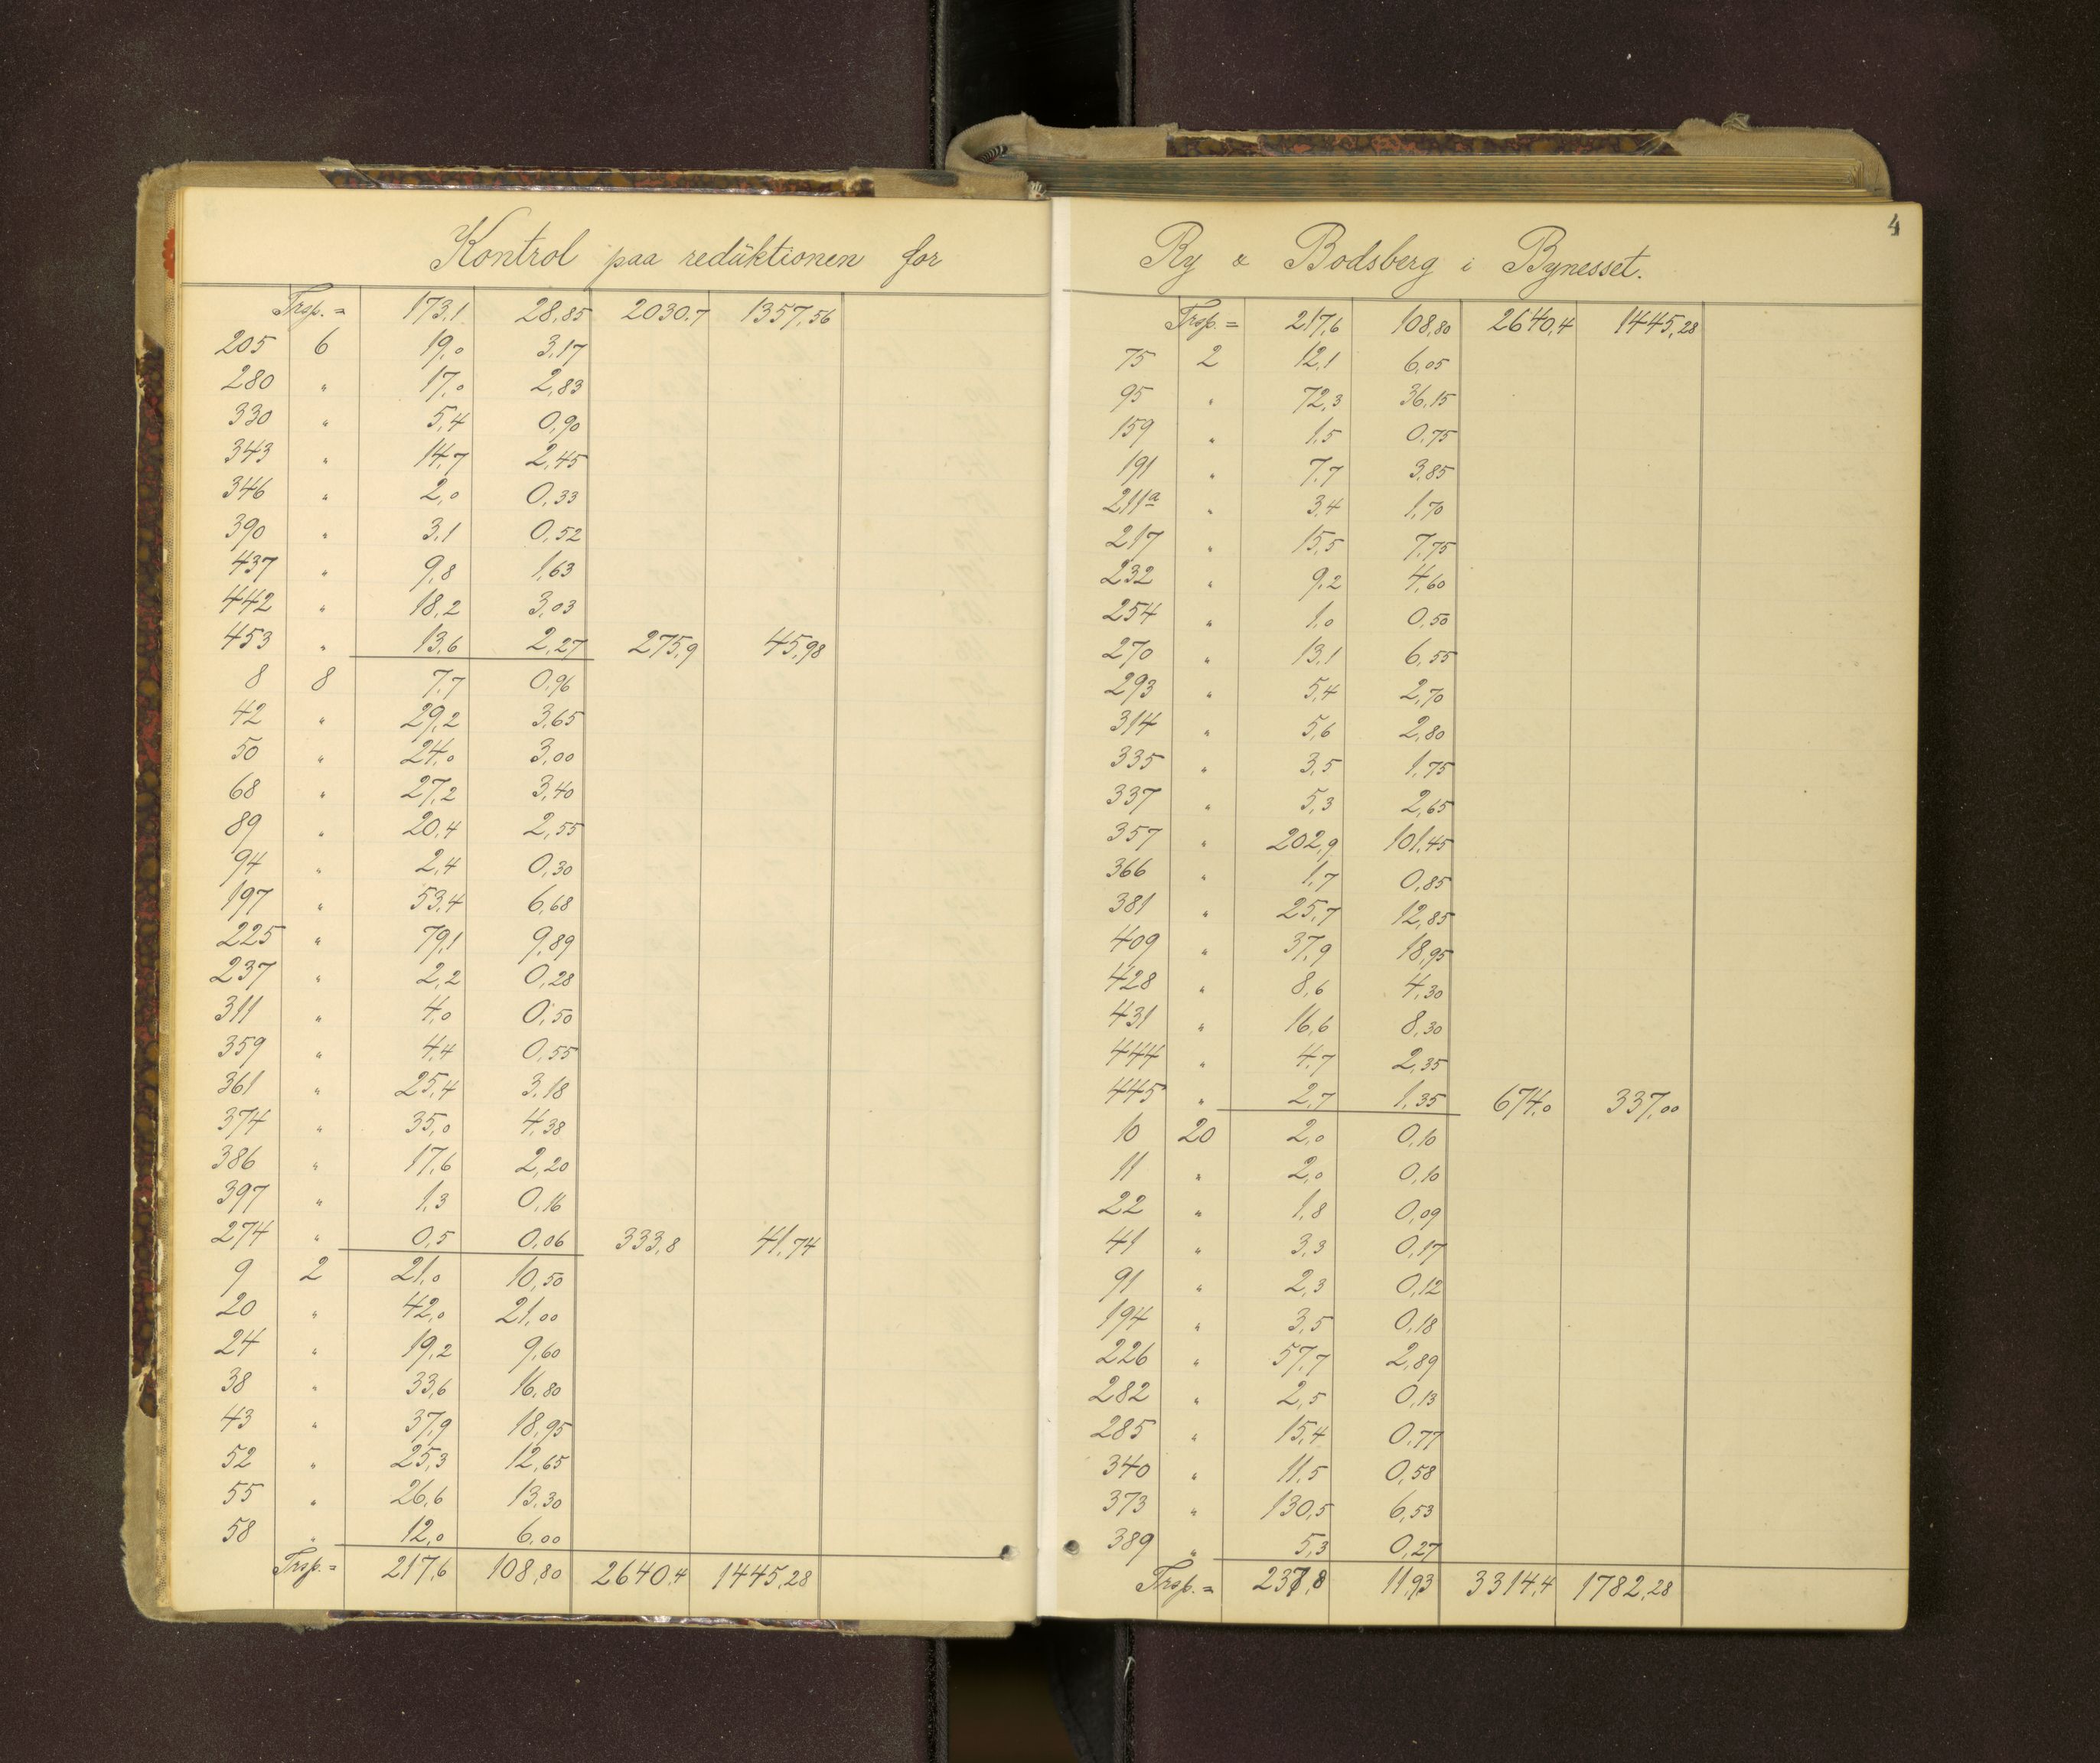 Kontrol paa redüktionen for
Trsp. = 173,1 28,85 2030,7 1357,56
205 6 19,0 3,17
280 " 17,0 2,83
330 " 5,4 0,90
343 " 14,7 2,45
346 " 2,0 0,33
390 " 3,1 0,52
437 " 9,8 1,63
442 " 18,2 3,03
453 " 13,6 2,27 275,9 45,98
8 8 7,7 0,96
42 " 29,2 3,65
50 " 24,0 3,00
68 " 27,2 3,40
89 " 20,4 2,55
94 " 2,4 0,30
197 " 53,4 6,68
225 " 79,1 9,89
237 " 2,2 0,28
311 " 4,0 0,50
359 " 4,4 0,55
361 " 25,4 3,18
374 " 35,0 4,38
386 " 17,6 2,20
397 " 1,3 0,16
274 " 0,5 0,06 333,8 41,74
9 2 21,0 10,50
20 " 42,0 21,00
24 " 19,2 9,60
38 " 33,6 16,80
43 " 37,9 18,95
52 " 25,3 12,65
55 " 26,6 13,30
58 " 12,0 6,00
Trsp. = 217,6 108,80 2640,4 1445,28
4
Ry & Bodsberg i Bynesset.
Trsp. = 217,6 108,80 2640,4 1445,28
75 2 12,1 6,05
95 " 72,3 36,15
159 " 1,5 0,75
191 " 7,7 3,85
211a " 3,4 1,70
217 " 15,5 7,75
232 " 9,2 4,60
254 " 1,0 0,50
270 " 13,1 6,55
293 " 5,4 2,70
314 " 5,6 2,80
335 " 3,5 1,75
337 " 5,3 2,65
357 " 202,9 101,45
366 " 1,7 0,85
381 " 25,7 12,85
409 " 37,9 18,95
428 " 8,6 4,30
431 " 16,6 8,30
444 " 4,7 2,35
445 " 2,7 1,35 674,0 337,00
10 20 2,0 0,10
11 " 2,0 0,10
22 " 1,8 0,09
41 " 3,3 0,17
91 " 2,3 0,12
194 " 3,5 0,18
226 " 57,7 2,89
282 " 2,5 0,13
285 " 15,4 0,77
340 " 11,5 0,58
373 " 130,5 6,53
389 " 5,3 0,27
Trsp. = 237,8 11,93 3314,4 1782,28